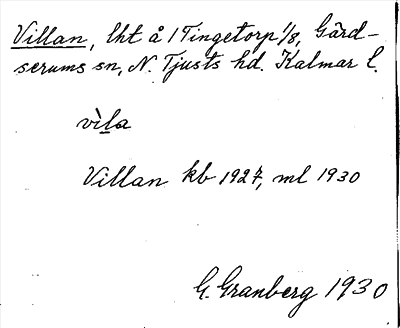 Villan, lht å 1 Tingetorp 1/8, Gärd-
serums sn, N. Tjusts hd. Kalmar l.
vìla
Villan kb 1927, ml 1930
G. Granberg 1930